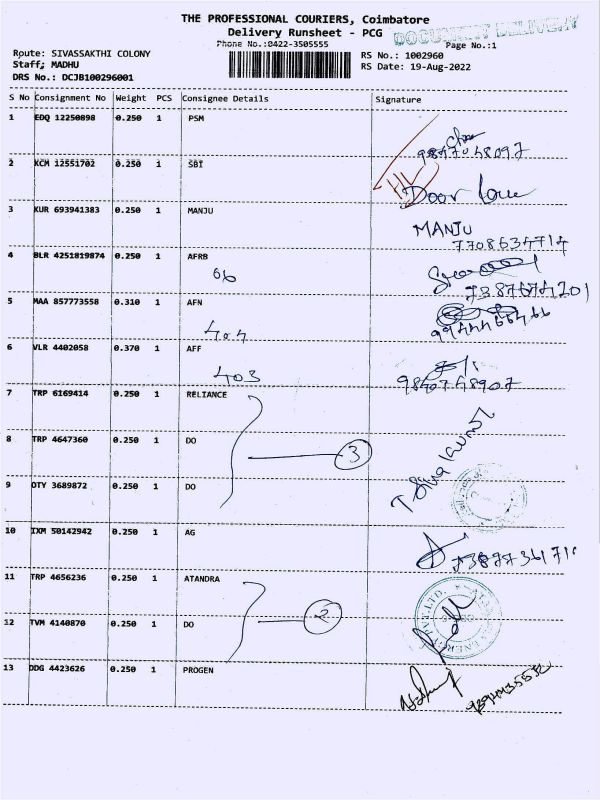 THE PROFESSIONAL COURIERS, Coimbatore
Delivery Runsheet - PCG
DOCUMENT DELIVERY
Phone No.:0422-3505555
Page No.:1
Route: SIVASSAKTHI COLONY
RS No.: 1002960
Staff; MADHU
RS Date: 19-Aug-2022
DRS No.: DCJB100296001
S No Consignment No Weight PCS Consignee Details Signature
1 EDQ 12250898 0.250 1 PSM
9847048097
2 KCM 12551702 0.250 1 SBI
Door
3 KUR 693941383 0.250 1 MANJU
MANJU
7708634714
4 BLR 4251819874 0.250 1 AFRB
7387674201
5 MAA 857773558 0.310 1 AFN
404
6 VLR 4402058 0.370 1 AFF
403
9840748907
7 TRP 6169414 0.250 1 RELIANCE
8 TRP 4647360 0.250 1 DO
3
9 OTY 3689872 0.250 1 DO
T Sivakumar
10 IXM 50142942 0.250 1 AG
11 TRP 4656236 0.250 1 ATANDRA
12 TVM 4140870 0.250 1 DO
2
13 DDG 4423626 0.250 1 PROGEN